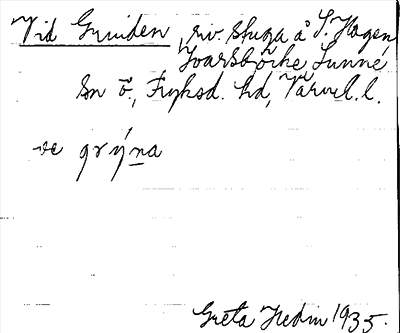 Vid Gruiden, riv. stuga å S. Hagen
Ivarsbjörke Sunne
Sn ö., Fryksd. hd, Värml. l.
ve grýna
Greta Hedin 1935.